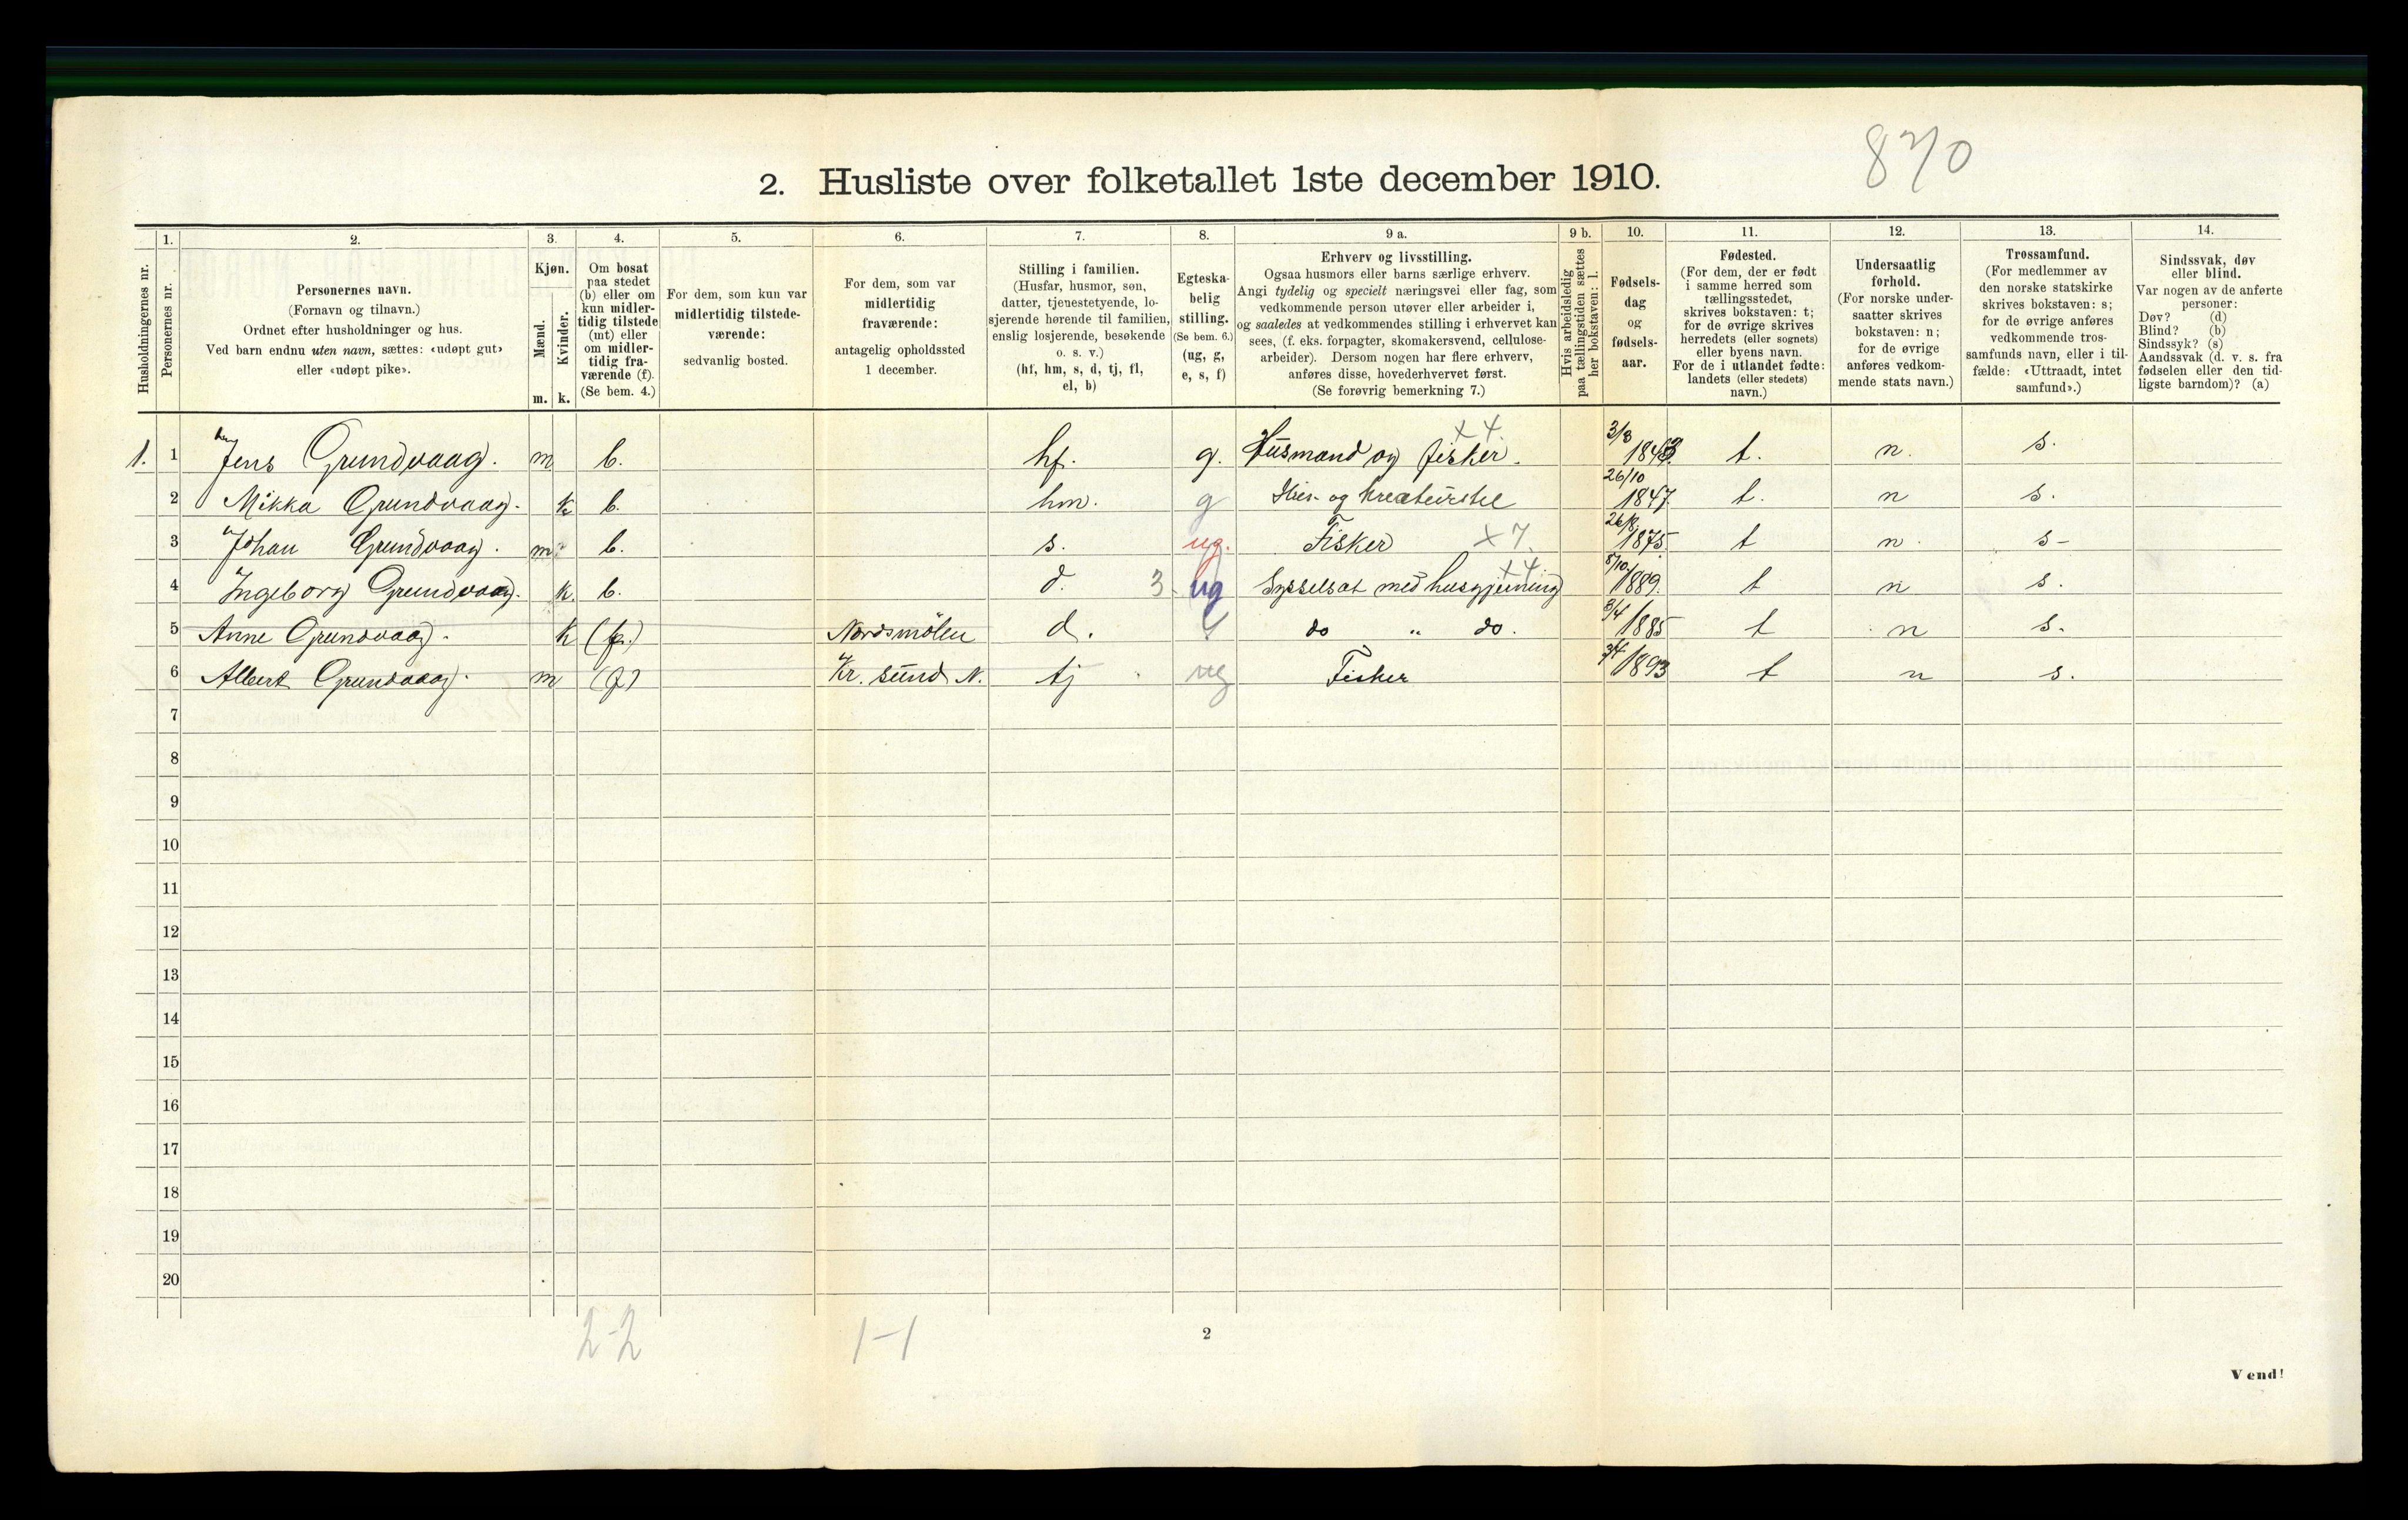 870
2. Husliste over folketallet 1ste december 1910.
Husholdningernes nr.
1.
Personernes nr.
2.
Personernes navn.
(Fornavn og tilnavn.)
Ordnet efter husholdninger og hus.
Ved barn endnu uten navn, sættes: «udøpt gut»
eller «udøpt pike».
3.
Kjøn.
Mænd.
Kvinder.
m. k.
4.
Om bosat
paa stedet
(b) eller om
kun midler-
tidig tilstede
(mt) eller
om midler-
tidig fra-
værende (f).
(Se bem. 4.)
5.
For dem, som kun var
midlertidig tilstede-
værende:
sedvanlig bosted.
6.
For dem, som var
midlertidig
fraværende:
antagelig opholdssted
1 december.
7.
Stilling i familien.
(Husfar, husmor, søn,
datter, tjenestetyende, lo-
sjerende hørende til familien,
enslig losjerende, besøkende
o. s. v.)
(hf, hm, s, d, tj, fl,
el, b)
8.
Egteska-
belig
stilling.
(Se bem. 6.)
(ug, g,
e, s, f)
9 a.
Erhverv og livsstilling.
Ogsaa husmors eller barns særlige erhverv.
Angi tydelig og specielt næringsvei eller fag, som
vedkommende person utøver eller arbeider i,
og saaledes at vedkommendes stilling i erhvervet kan
sees, (f. eks. forpagter, skomakersvend, cellulose-
arbeider). Dersom nogen har flere erhverv,
anføres disse, hovederhvervet først.
(Se forøvrig bemerkning 7.)
9 b.
Hvis arbeidsledig
paa tællingstiden sættes
her bokstaven: l.
10.
Fødsels-
dag
og
fødsels-
aar.
11.
Fødested.
(For dem, der er født
i samme herred som
tællingsstedet,
skrives bokstaven: t;
for de øvrige skrives
herredets (eller sognets)
eller byens navn.
For de i utlandet fødte:
landets (eller stedets)
navn.)
12.
Undersaatlig
forhold.
(For norske under-
saatter skrives
bokstaven: n;
for de øvrige
anføres vedkom-
mende stats navn.)
13.
Trossamfund.
(For medlemmer av
den norske statskirke
skrives bokstaven: s;
for de øvrige anføres
vedkommende tros-
samfunds navn, eller i til-
fælde: «Uttraadt, intet
samfund».)
14.
Sindssvak, døv
eller blind.
Var nogen av de anførte
personer:
Døv? (d)
Blind? (b)
Sindssyk? (s)
Aandssvak (d. v. s. fra
fødselen eller den tid-
ligste barndom)? (a)
1. 1 Jens Grundvaag. m b. hf. g. Husmand og fisker. x 4. 3/3 1843 t. n. s.
2 Mikka Grundvaag. k b. hm. g Hus- og kreaturstel 26/10 1847. t. n s.
3 Johan Grundvaag. m b. s. ug. Fisker x 7. 26/8 1875. t n. s-
4 Ingeborg Grundvaag. k. b. d. 3- ug Sysselsat med husgjerning x 4 8/10 1889. t n s.
5 Anne Grundvaag. k (f.) Nordsmölen d. do " do. 3/4 1885 t n s.
6 Albert Grundvaag. m (f) Kr. sund N. tj ug Fisker 1893 t n s.
7
8
9
10
11
12
13
14
15
16
17
18
19
20
2-2
1-1
2
Vend!